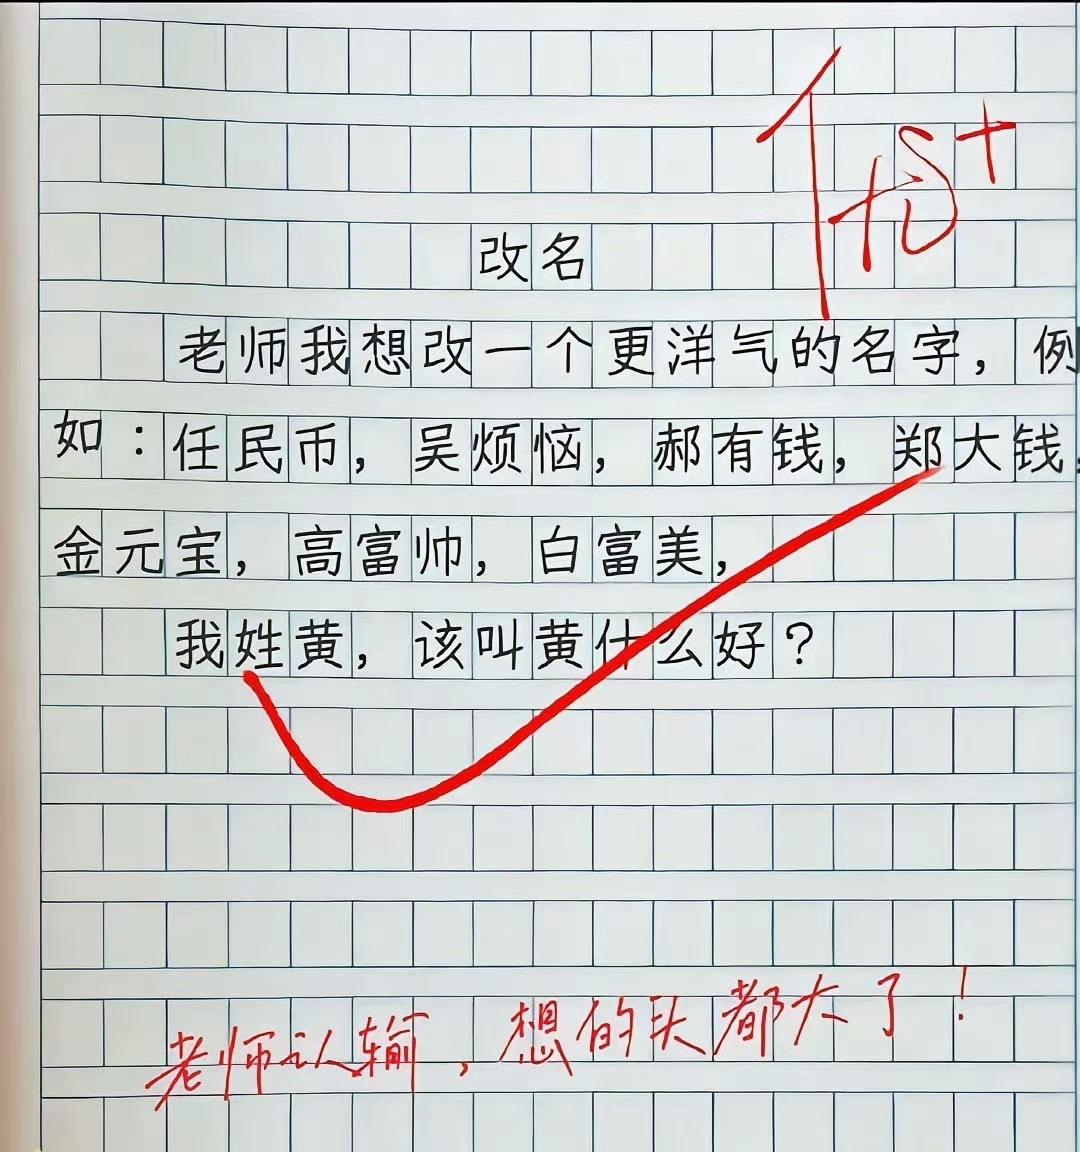 改名
老师我想改一个更洋气的名字，例
如：任民币，吴烦恼，郝有钱，郑大钱，
金元宝，高富帅，白富美，
我姓黄，该叫黄什么好？
老师认输，想的头都大了！